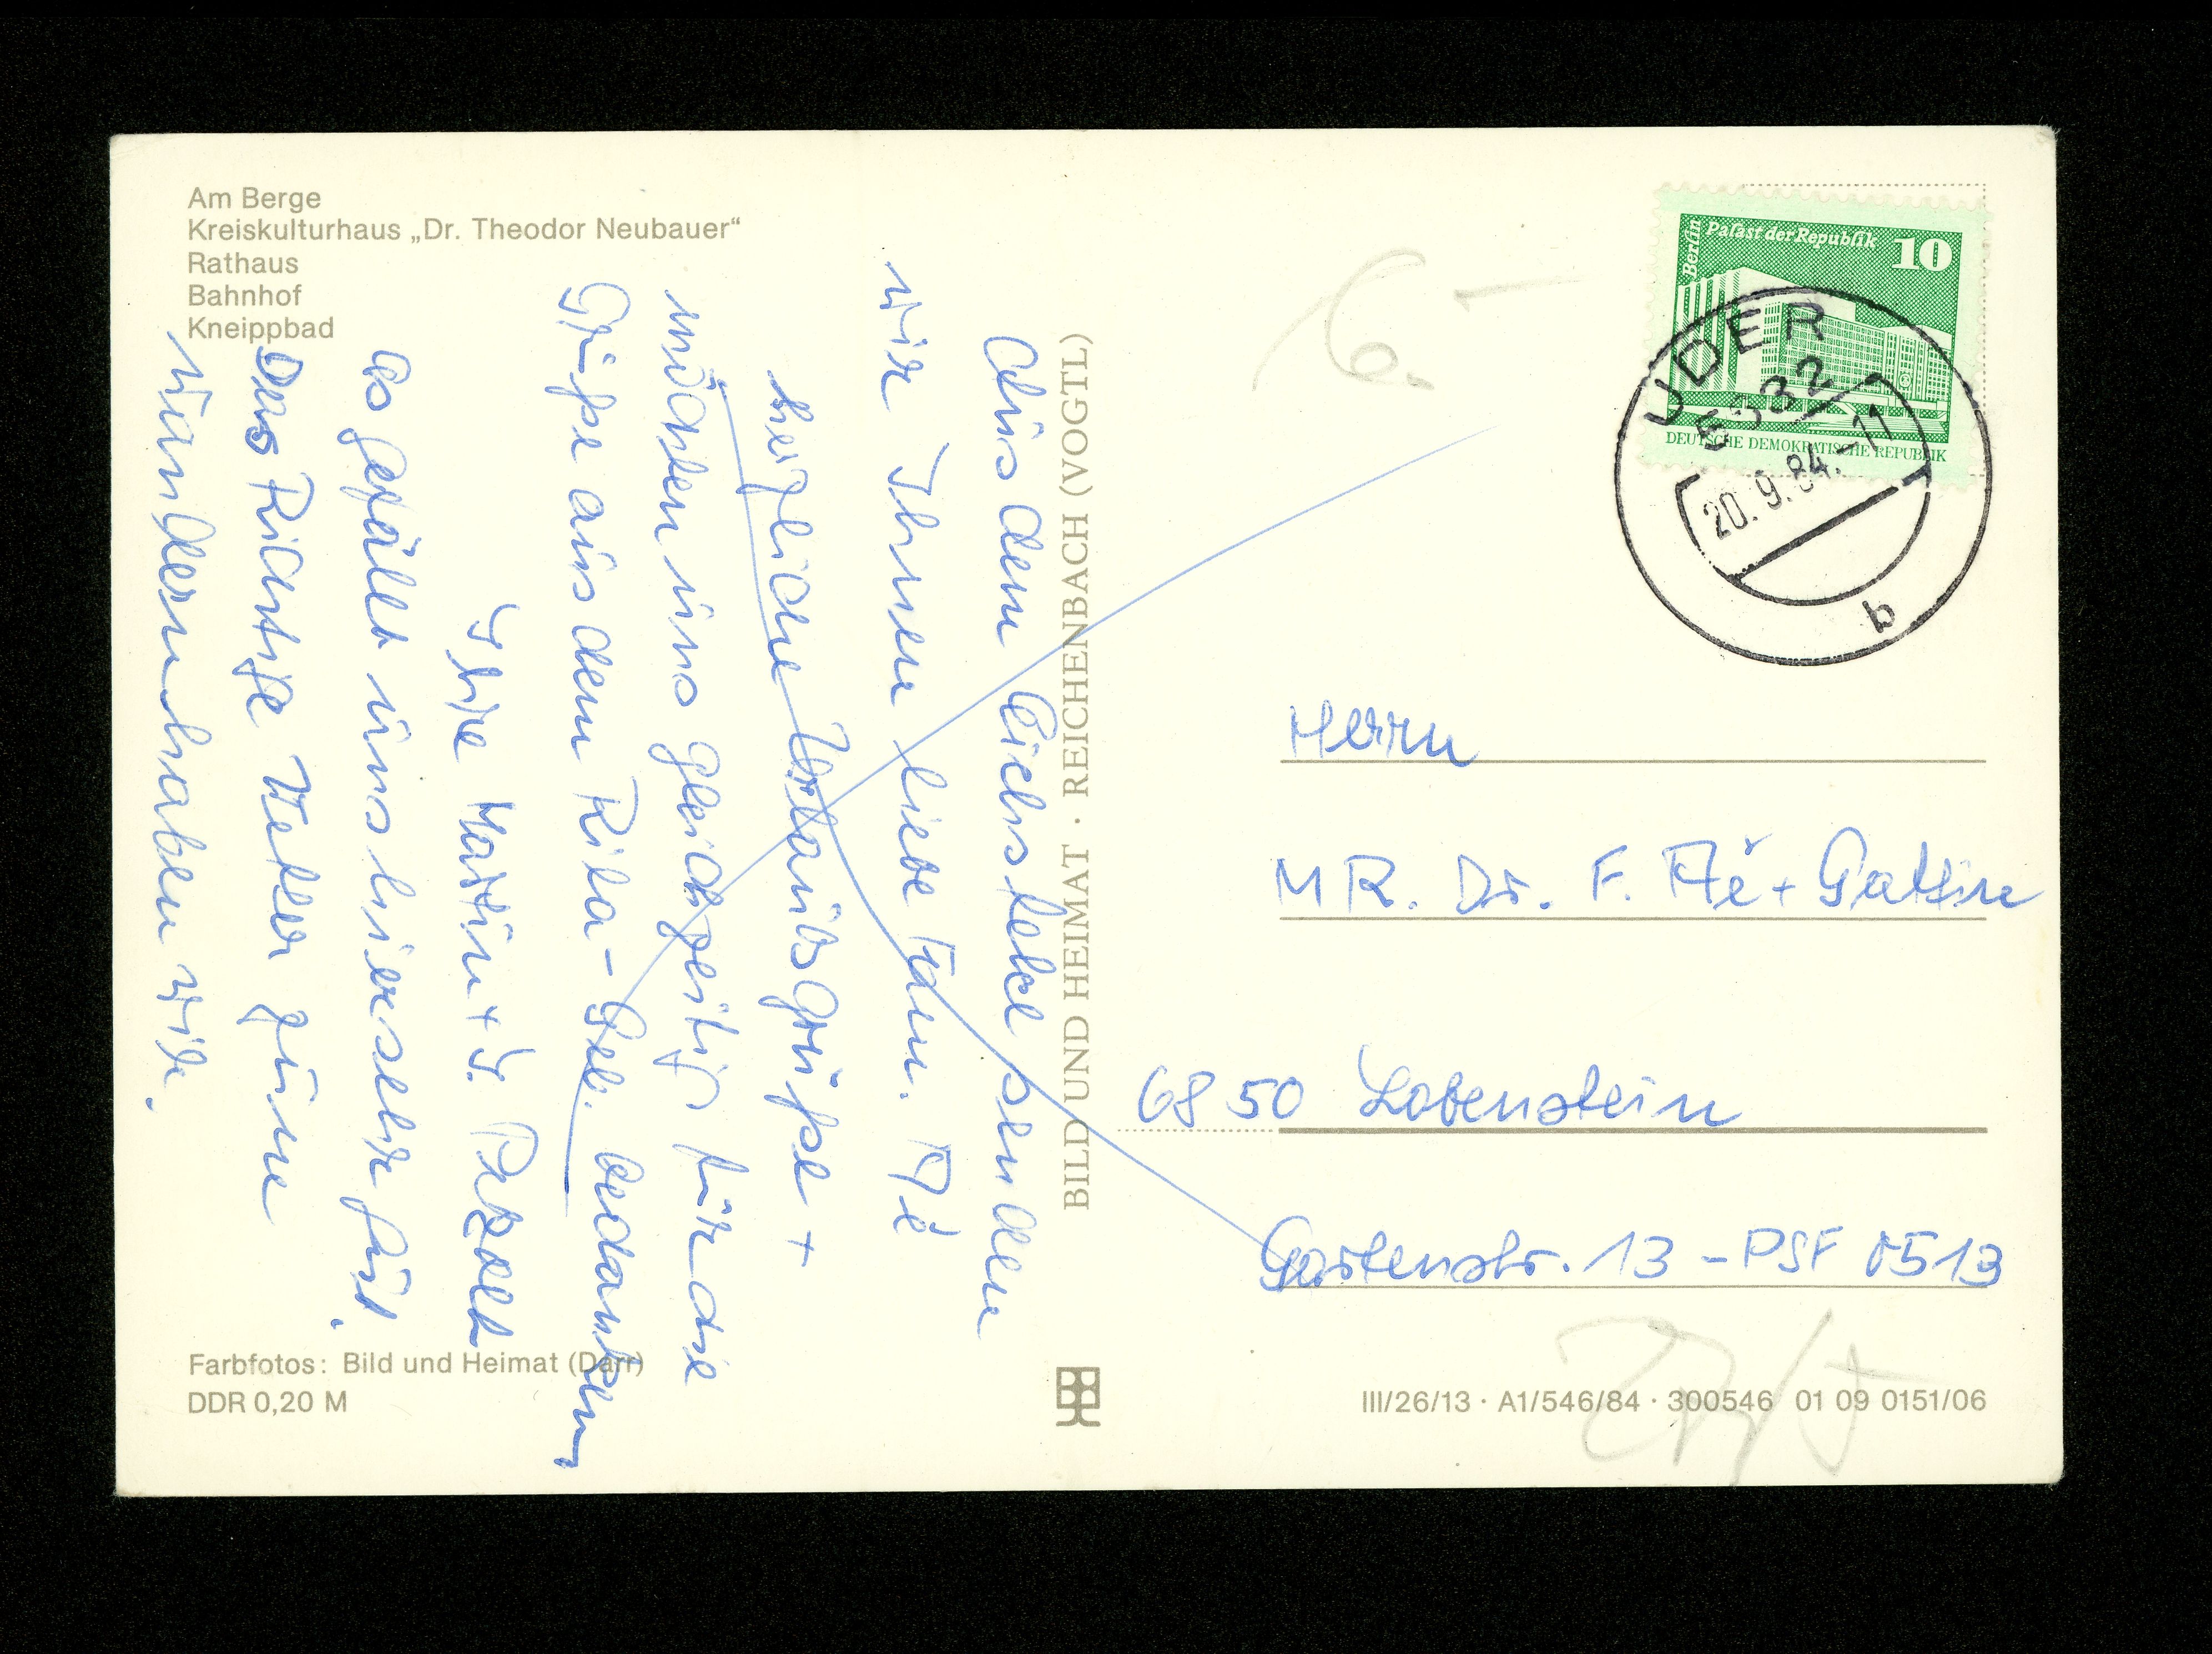 Am Berge
Kreiskulturhaus „Dr. Theodor Neubauer“
Rathaus
Bahnhof
Kneippbad
Aus dem Eichsfeld senden
wir Ihnen liebe Fam.
herzliche Urlaubsgrüße +
möchten uns gleichzeitig für die
Grüße aus dem Rila-Geb. bedanken
Ihre Martin + J. Petzold
Es gefällt uns hier sehr gut.
Das Richtige Wetter zum
Wandern haben wir.
Farbfotos: Bild und Heimat (Darr)
DDR 0,20 M
BILD UND HEIMAT · REICHENBACH (VOGTL)
6.–
Berlin
Palast der Republik
10
DEUTSCHE DEMOKRATISCHE REPUBLIK
UDER
5632
20.9.84.-11
b
Herrn
MR. Dr. F. + Gattin
6850 Lobenstein
Gartenstr. 13 - PSF 0513
III/26/13 · A1/546/84 · 300546 01 09 0151/06